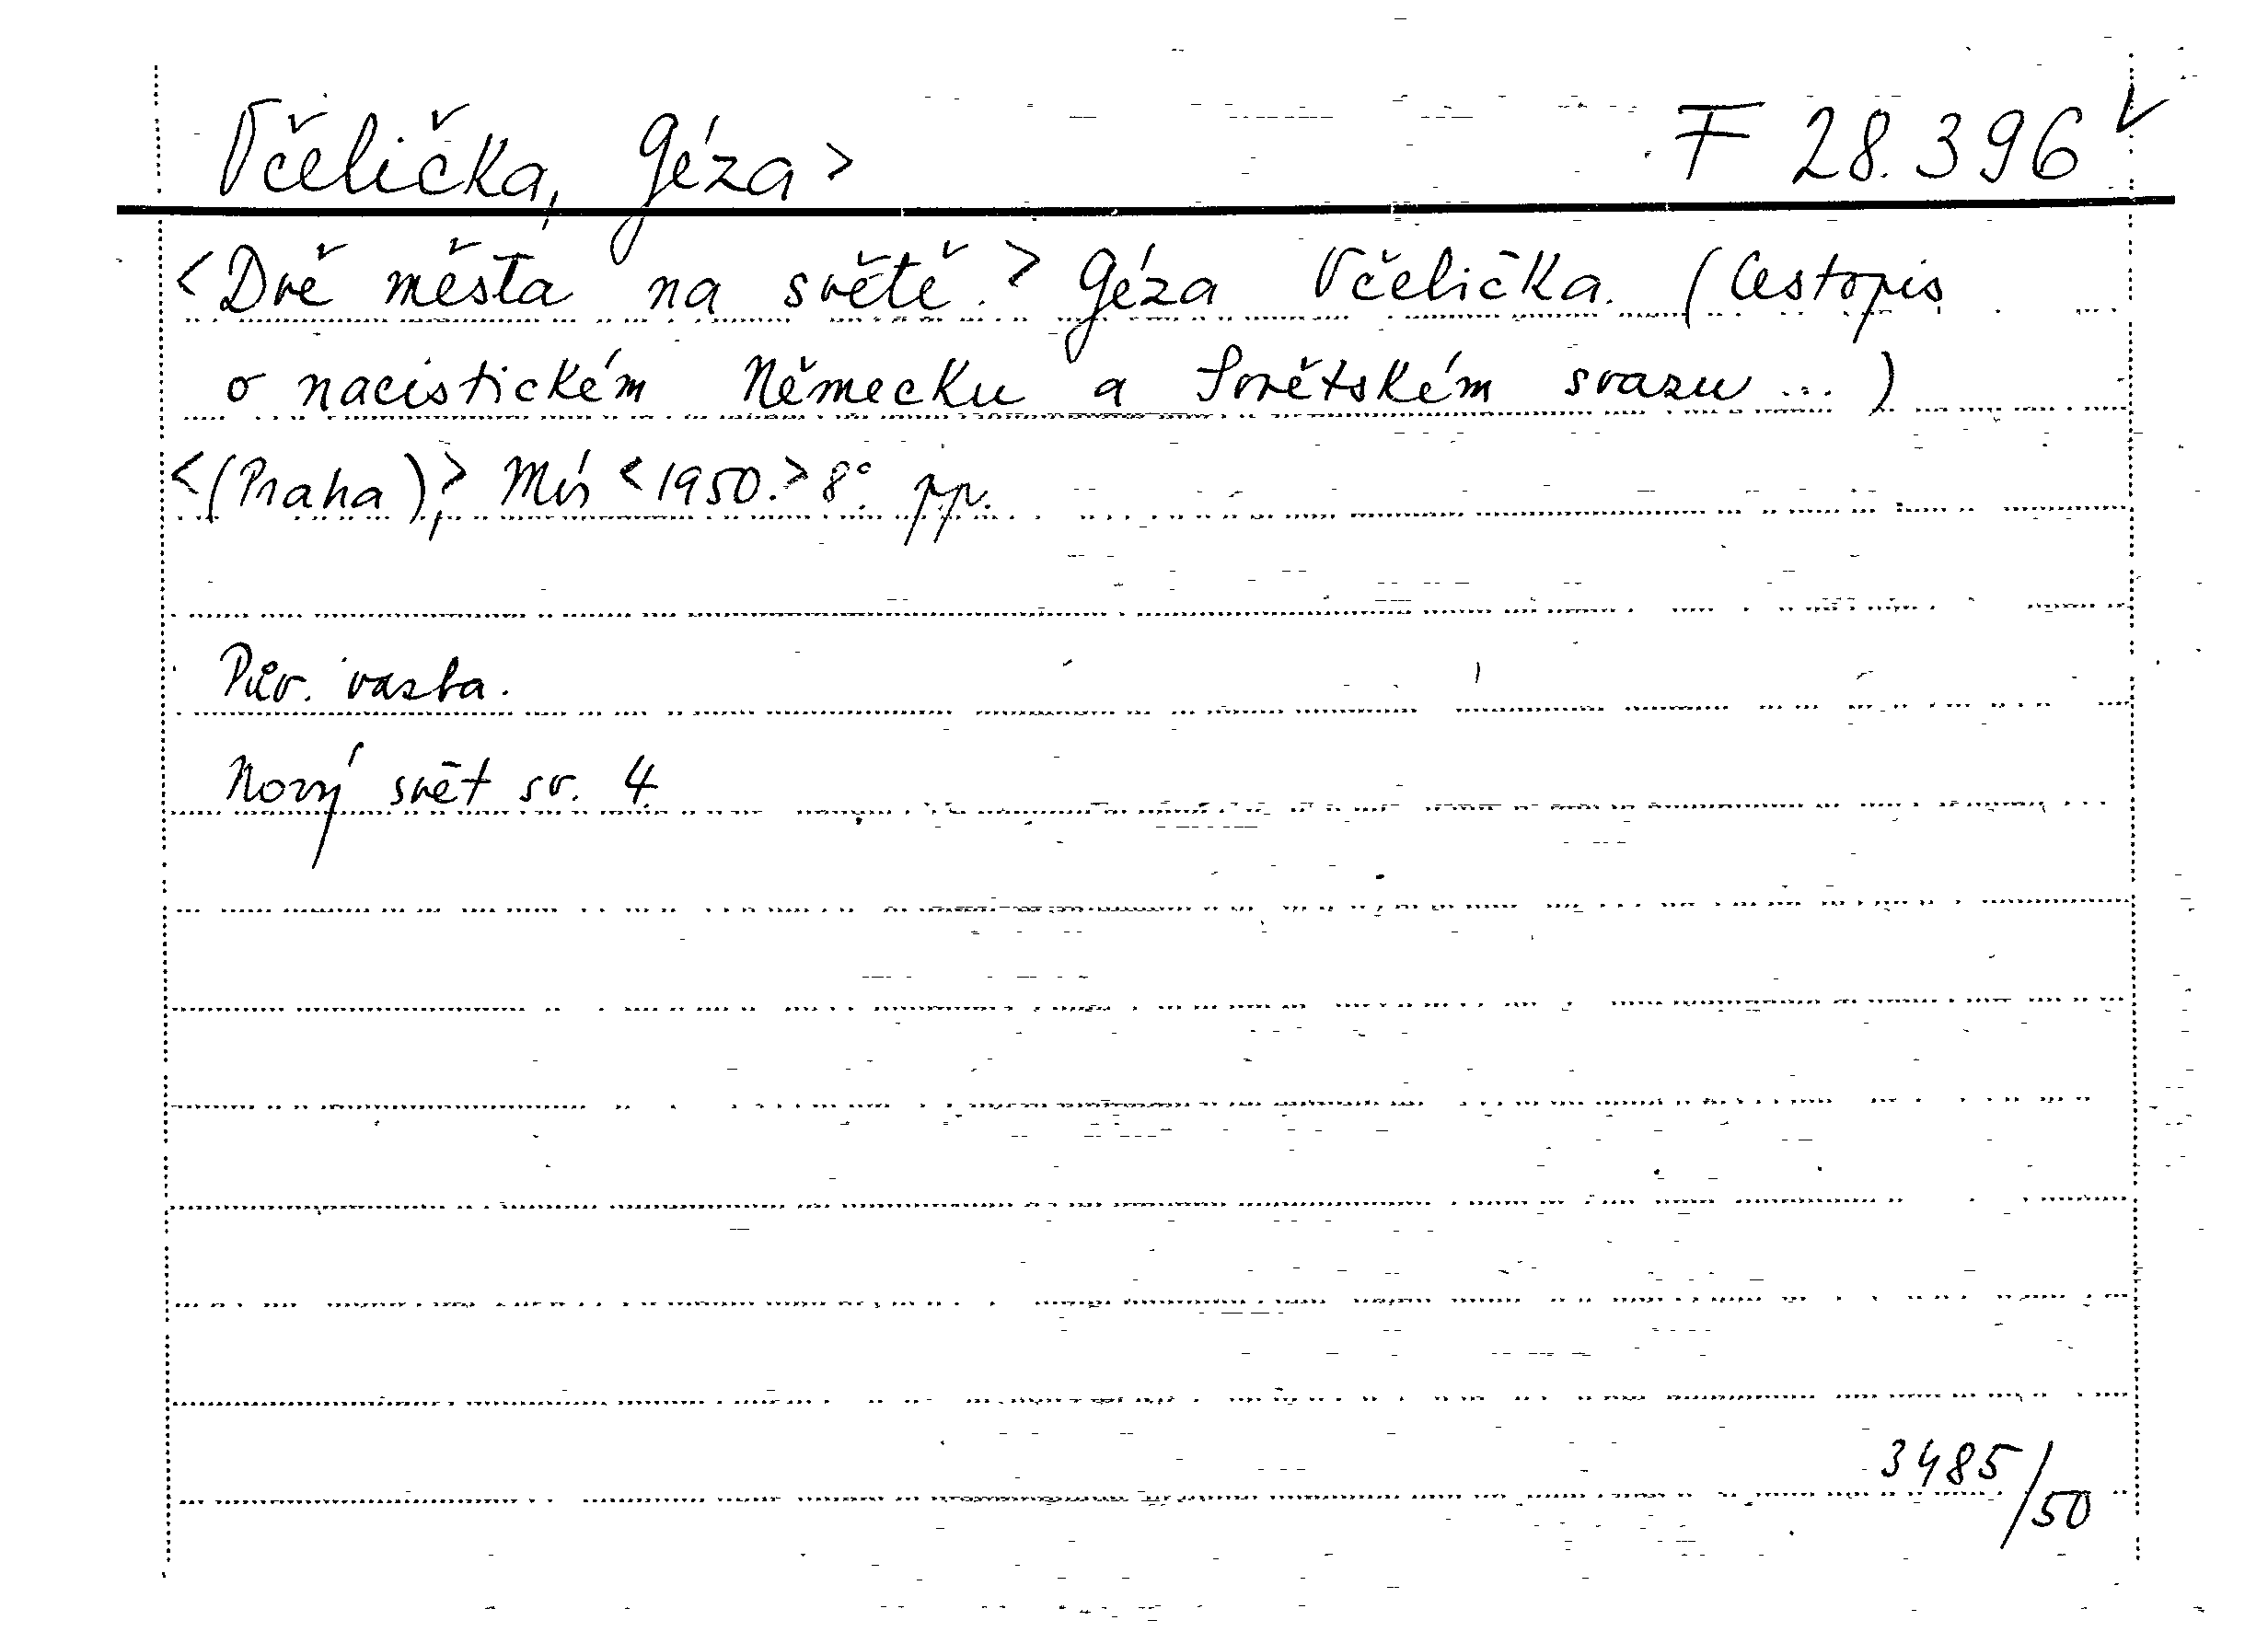 Včelička, Géza> F 28.396
<Dvě města na světě.> Géza Včelička. (Cestopis
o nacistickém Německu a Sovětském svazu...)
<(Praha),> Mír <1950.> 8°. pp.
Pův. vazba.
Nový svět sv. 4.
3485/50